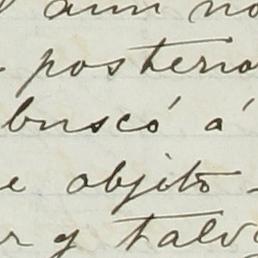 aun no
posterio
buscó á
e objeto
r y talv